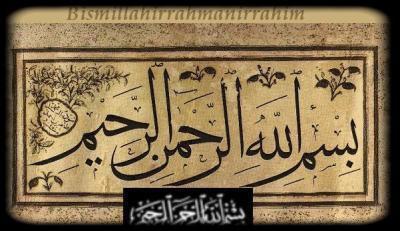 Bismillahirrahmanirrahim
بِسْمِ اللهِ الرَّحْمنِ الرَّحِيمِ
بسم الله الرحمن الرحيم